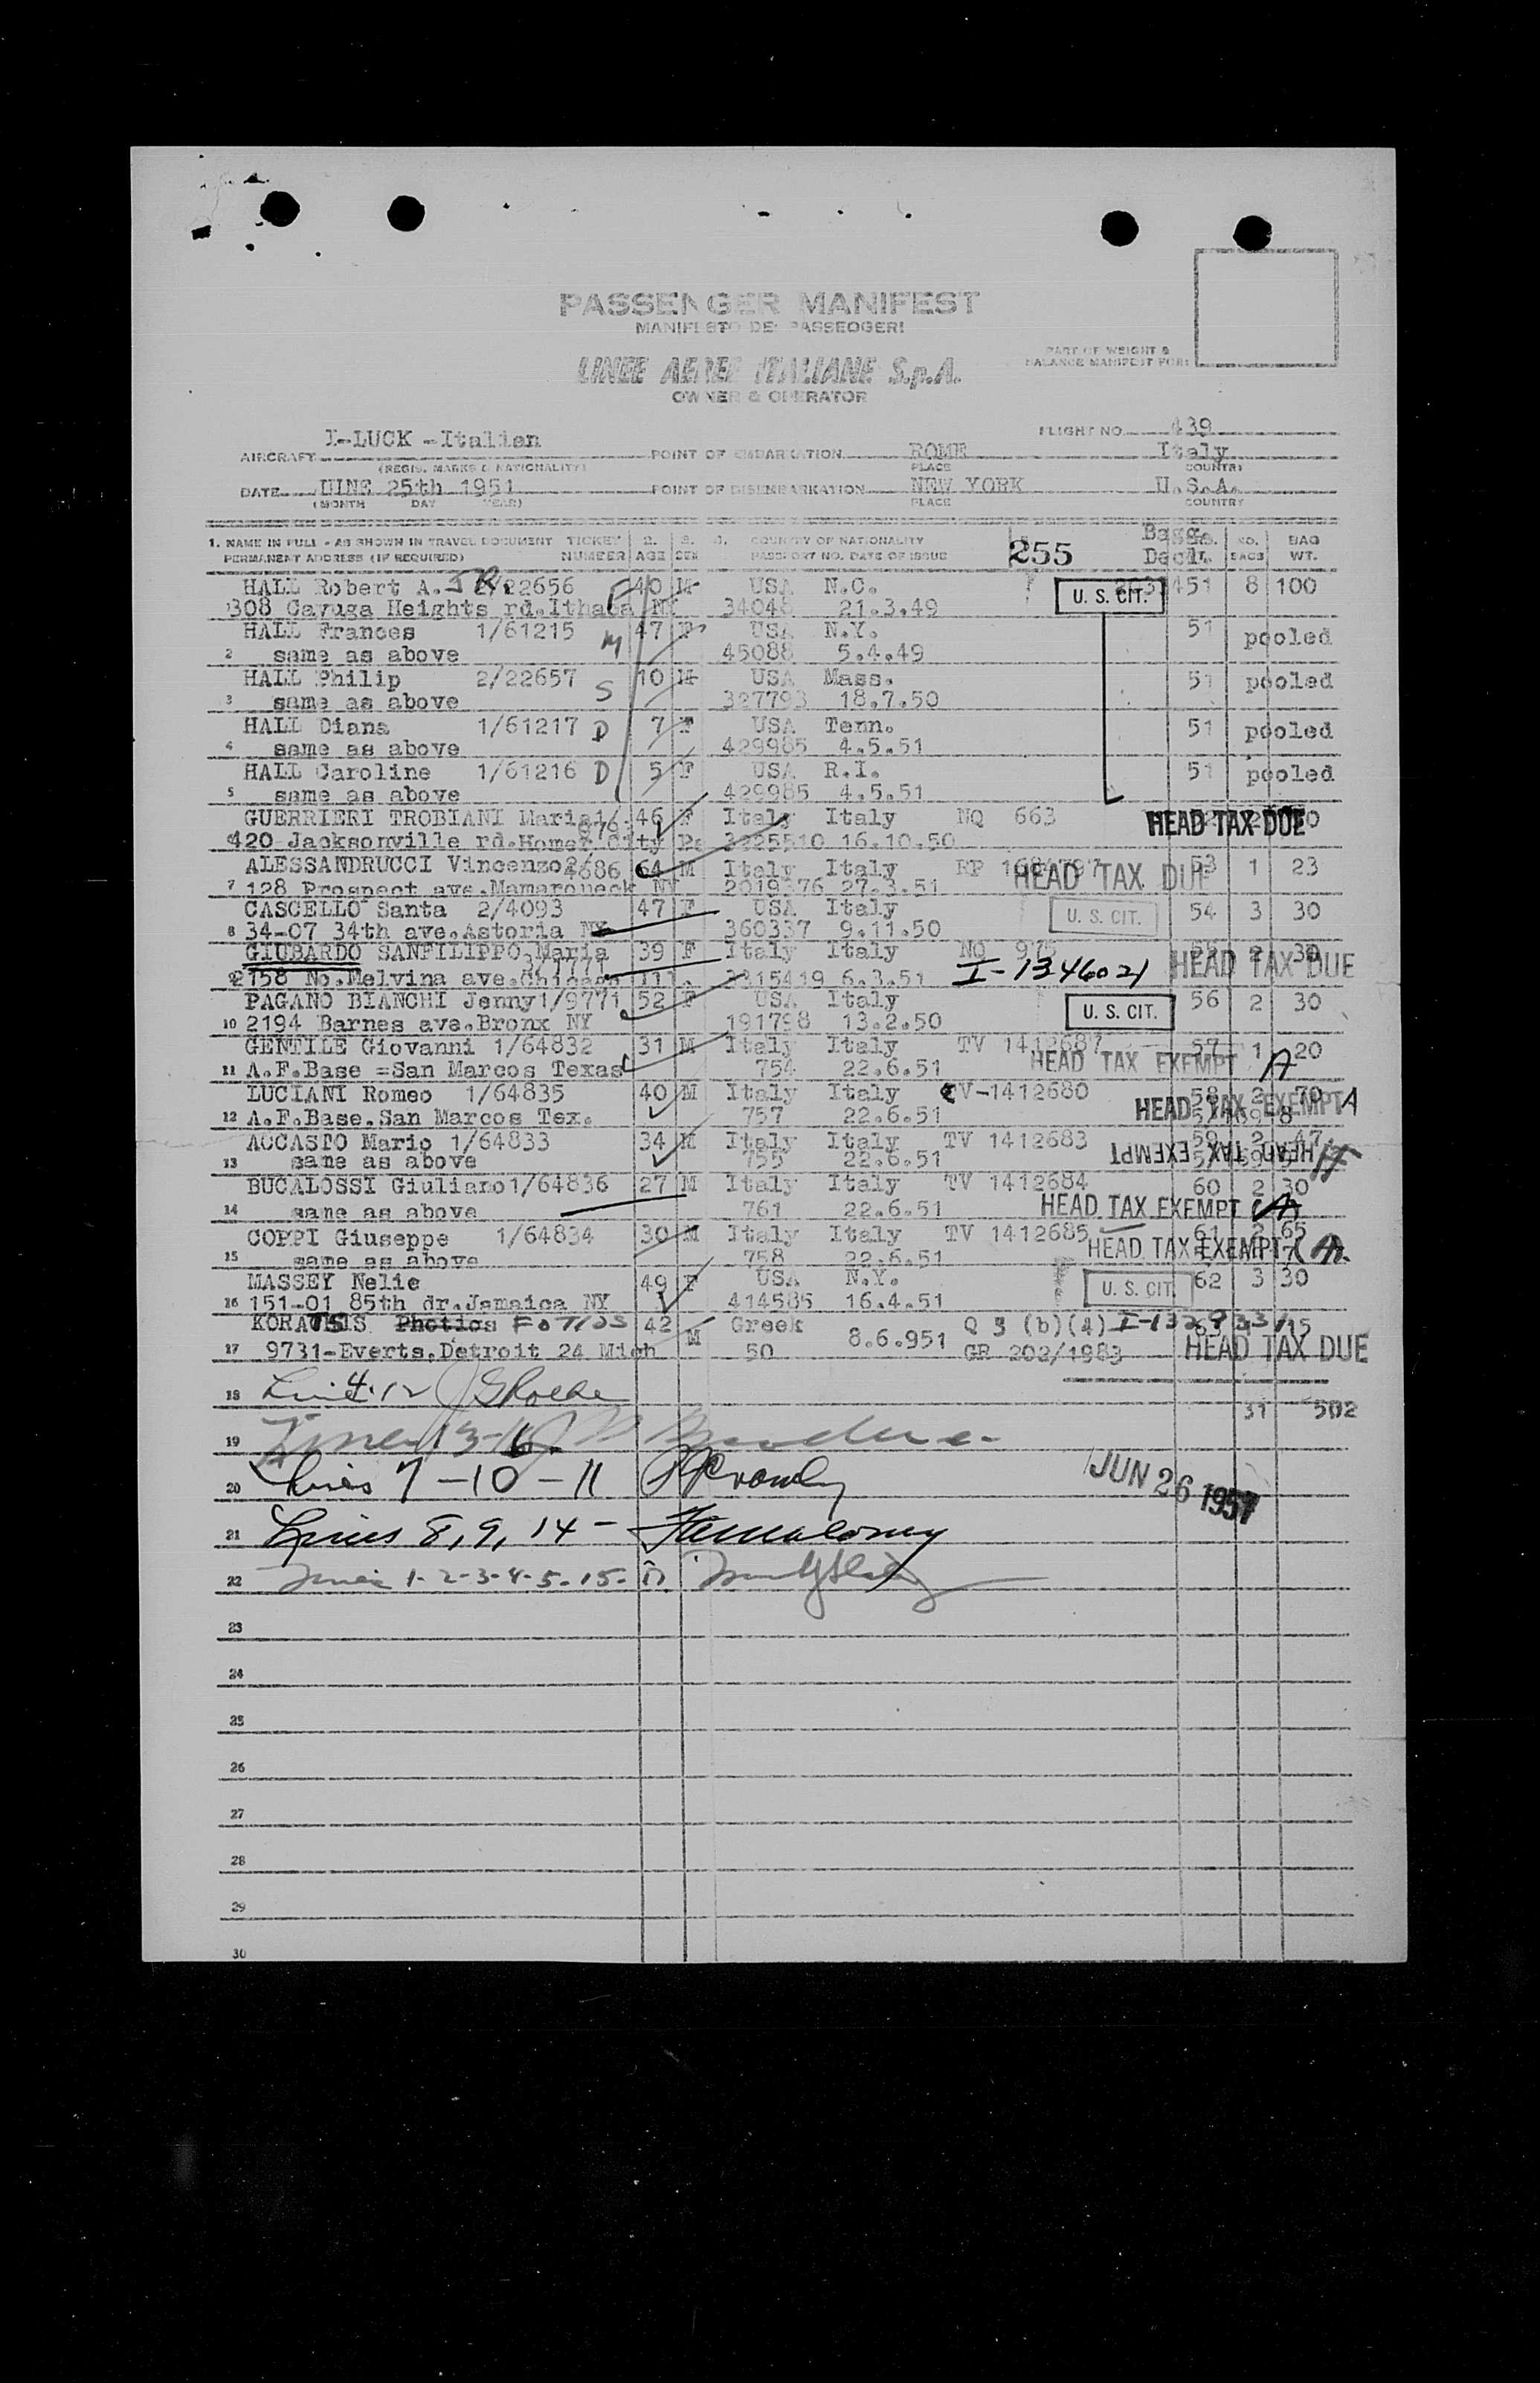 PASSENGER MANIFEST
MANIFESTO DEI PASSEGGERI
LINEE AEREE ITALIANE S.p.A.
OWNER & OPERATOR
PART OF WEIGHT &
BALANCE MANIFEST FOR:
FLIGHT NO. 439
AIRCRAFT I-LUCK -Italian POINT OF EMBARKATION ROME Italy
(REGIS. MARKS & NATIONALITY) PLACE COUNTRY
DATE JUNE 25th 1951 POINT OF DISEMBARKATION NEW YORK U.S.A.
(MONTH DAY YEAR) PLACE COUNTRY
1. NAME IN FULL - AS SHOWN IN TRAVEL DOCUMENT TICKET 2. 3. 4. COUNTRY OF NATIONALITY 255 Bagg. NO. BAG
PERMANENT ADDRESS (IF REQUIRED) NUMBER AGE SEX PASSPORT NO. DATE OF ISSUE Decl. BAGS WT.
HALL Robert A. JR. 2/22656 F 40 M USA N.C. U. S. CIT. 451 8 100
1 308 Cayuga Heights rd.Ithaca NY 34048 21.3.49
HALL Frances 1/61215 M 47 F USA N.Y. 51 pooled
2 same as above 45088 5.4.49
HALL Philip 2/22657 S 10 M USA Mass. 51 pooled
3 same as above 327793 18.7.50
HALL Diana 1/61217 D 7 F USA Tenn. 51 pooled
4 same as above 429985 4.5.51
HALL Caroline 1/61216 D 5 F USA R.I. 51 pooled
5 same as above 429985 4.5.51
GUERRIERI TROBIANI Maria 1/ 46 F Italy Italy NQ 663 HEAD TAX DUE
6 420 Jacksonville rd.Homer City Pa 3225510 16.10.50
ALESSANDRUCCI Vincenzo 2/4686 64 M Italy Italy RP HEAD TAX DUE 53 1 23
7 128 Prospect ave.Mamaroneck NY 2019376 27.3.51
CASCELLO Santa 2/4093 47 F USA Italy U. S. CIT. 54 3 30
8 34-07 34th ave.Astoria NY 360337 9.11.50
GIUBARDO SANFILIPPO Maria 39 F Italy Italy NQ 975 2 30
2158 No.Melvina ave.Chicago Ill. 3315419 6.3.51 I-1346021 HEAD TAX DUE
PAGANO BIANCHI Jenny 1/9771 52 F USA Italy U. S. CIT. 56 2 30
10 2194 Barnes ave.Bronx NY 191798 13.2.50
GENTILE Giovanni 1/64832 31 M Italy Italy TV 1412687 57 1 20
11 A.F.Base =San Marcos Texas 754 22.6.51 HEAD TAX EXEMPT A
LUCIANI Romeo 1/64835 40 M Italy Italy TV-1412680 58 2 70
12 A.F.Base.San Marcos Tex. 757 22.6.51 HEAD TAX EXEMPT A
ACCASTO Mario 1/64833 34 M Italy Italy TV 1412683 59 2 47
13 same as above 755 22.6.51 HEAD TAX EXEMPT A
BUCALOSSI Giuliano 1/64836 27 M Italy Italy TV 1412684 60 2 30
14 same as above 761 22.6.51 HEAD TAX EXEMPT A
COPPI Giuseppe 1/64834 30 M Italy Italy TV 1412685 61 2 65
15 same as above 758 22.6.51 HEAD TAX EXEMPT A
MASSEY Nelie 49 F USA N.Y. U. S. CIT. 62 3 30
16 151-01 85th dr.Jamaica NY 414585 16.4.51
Photios FOTIOS 42 M Greek 8.6.951 Q 3 (b)(4) 15
17 9731-Everts,Detroit 24 Mich 50 GR 202/1983 HEAD TAX DUE
18 31 502
19
20 Lines 7-10-11
JUN 26 1951
21 Lines 8, 9, 14-
22 Lines 1-2-3-4-5-15-
23
24
25
26
27
28
29
30